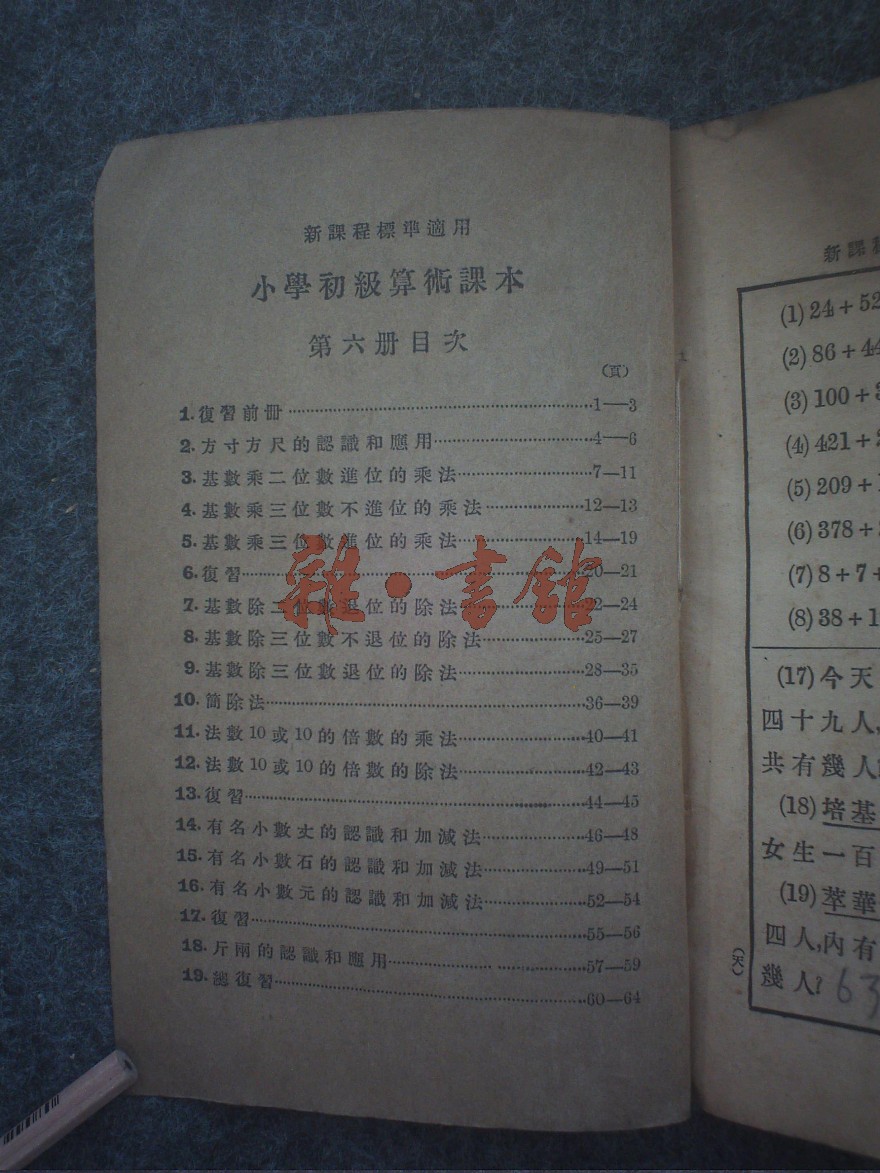 新課程標準適用
小學初級算術課本
第六册目次
(頁)
1.復習前冊……1—3
2.方寸方尺的認識和應用……4—6
3.基數乘二位數進位的乘法……7—11
4.基數乘三位數不進位的乘法……12—13
5.基數乘三位數進位的乘法……14—19
6.復習……20—21
7.基數除二位數退位的除法……22—24
8.基數除三位數不退位的除法……25—27
9.基數除三位數退位的除法……28—35
10.簡除法……36—39
11.法數10或10的倍數的乘法……40—41
12.法數10或10的倍數的除法……42—43
13.復習……44—45
14.有名小數丈的認識和加減法……46—48
15.有名小數石的認識和加減法……49—51
16.有名小數元的認識和加減法……52—54
17.復習……55—56
18.斤兩的認識和應用……57—59
19.總復習……60—64
雜·書館
新課程
(1) 24+52
(2) 86+44
(3) 100+
(4) 421+
(5) 209+
(6) 378+
(7) 8+7+
(8) 38+1
(17)今天
四十九人,
共有幾人
(18)培基
女生一百
(19)萃華
四人,內有
幾人? 63
(天)